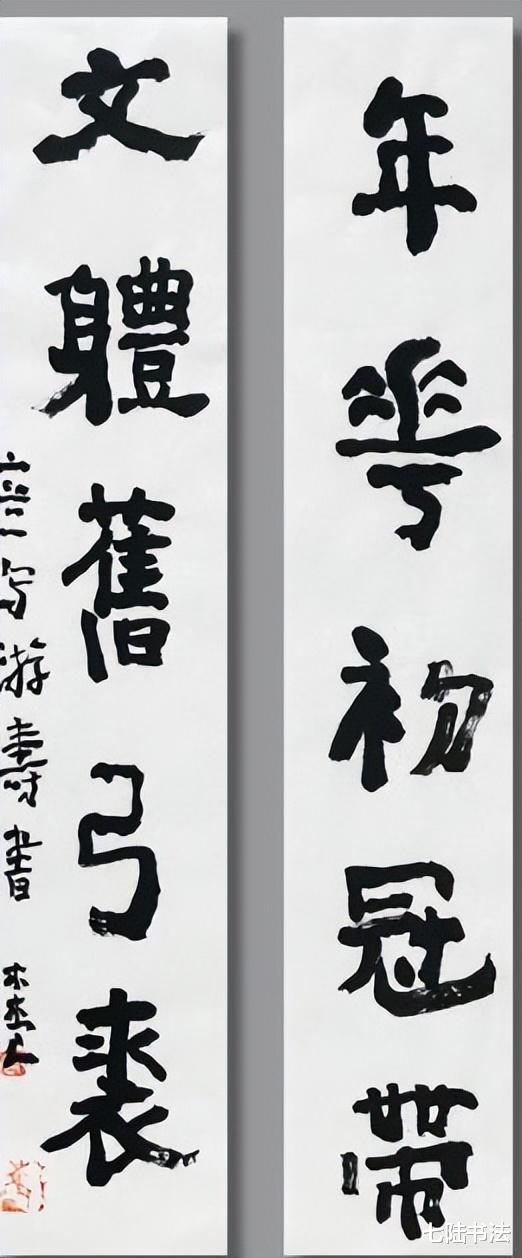 年華初冠帶
文體舊弓裘
寫游壽書
七陆书法